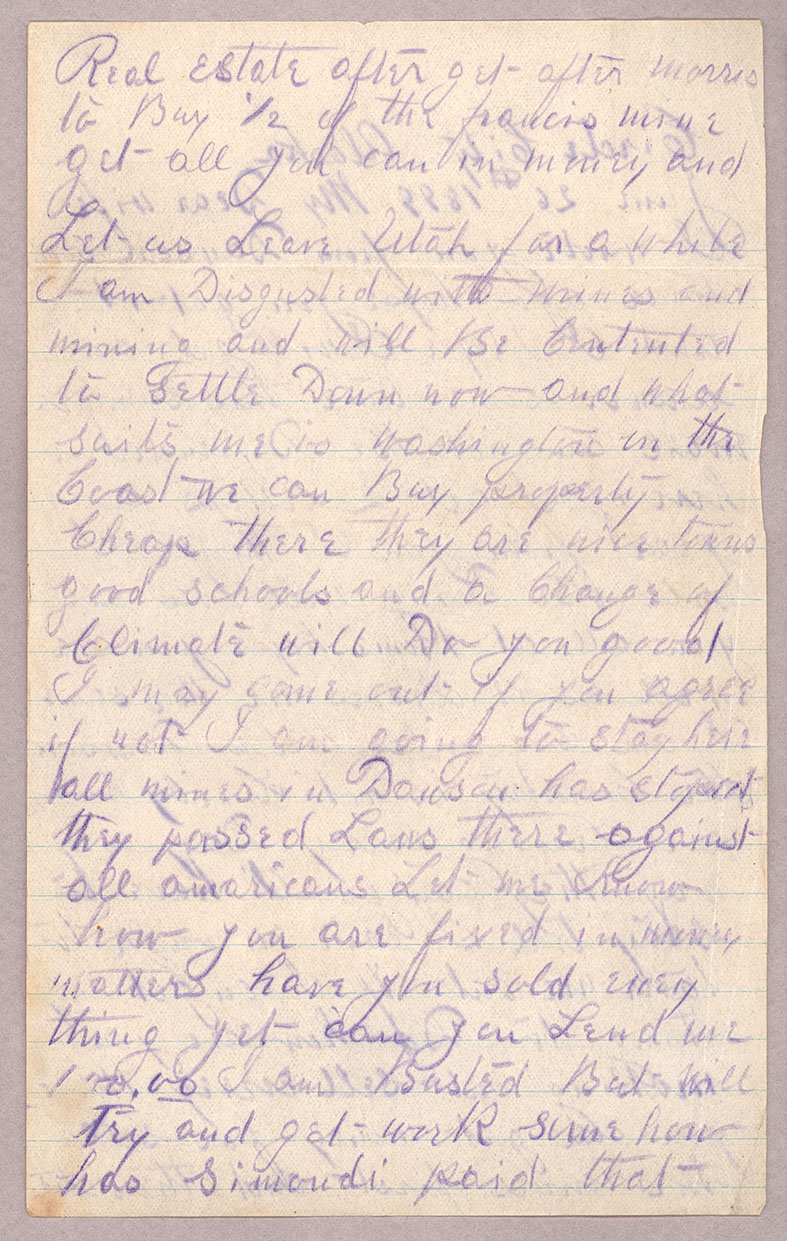 Real Estate after get after morris
to Buy 1/2 of the francis mine
get all you can in money and
Let us Leave Utah for a while
I am Disgusted with mines and
mining and will Be Contented
to Settle Down now and what
suits me is Washington on the
Coast we can Buy property
Cheap there they are nice towns
good schools and a Change of
Climate will Do you good
I may come out if you agree
if not I am going to stay here
all mines in Dawson has stopped
they passed Laws there against
all amaricans Let me know
how you are fixed in money
matters have you sold evey
thing yet can you Lend me
100.00 I am Busted But will
Try and get work some how
has Simondi paid that